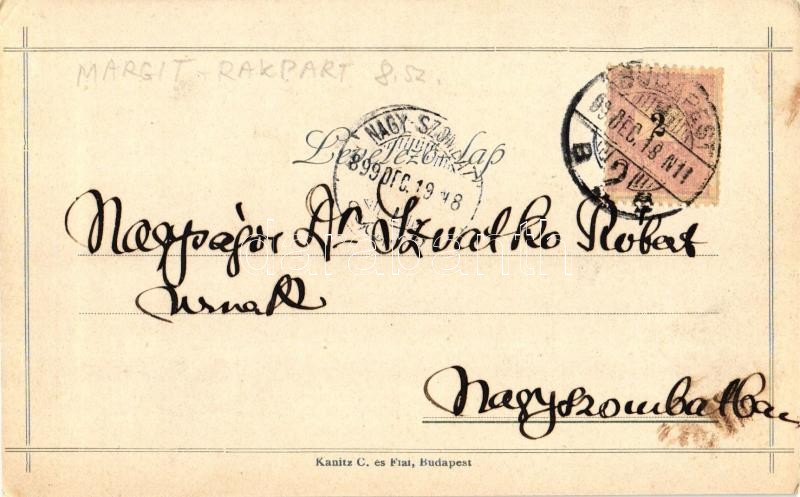 MARGIT-RAKPART 8. sz.
BUDAPEST
99 DEC. 18 N11
B 2
2
NAGY-SZOMBAT
899 DEC. 19 N8
Levelező-lap
Dr. Szvatko Robert
urnak
Nagyszombatban
Kanitz C. és Fiai, Budapest